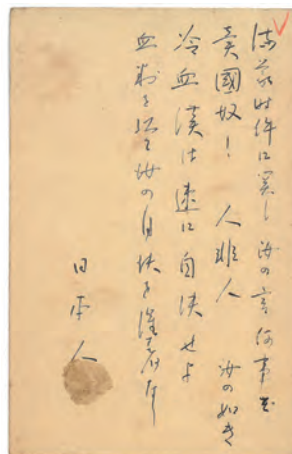 満蒙時件に関し汝の言何事ぞ
賣國奴! 人非人 汝の如き
冷血漢は速に自決せよ
血判を以て汝の自決を促す
日本人